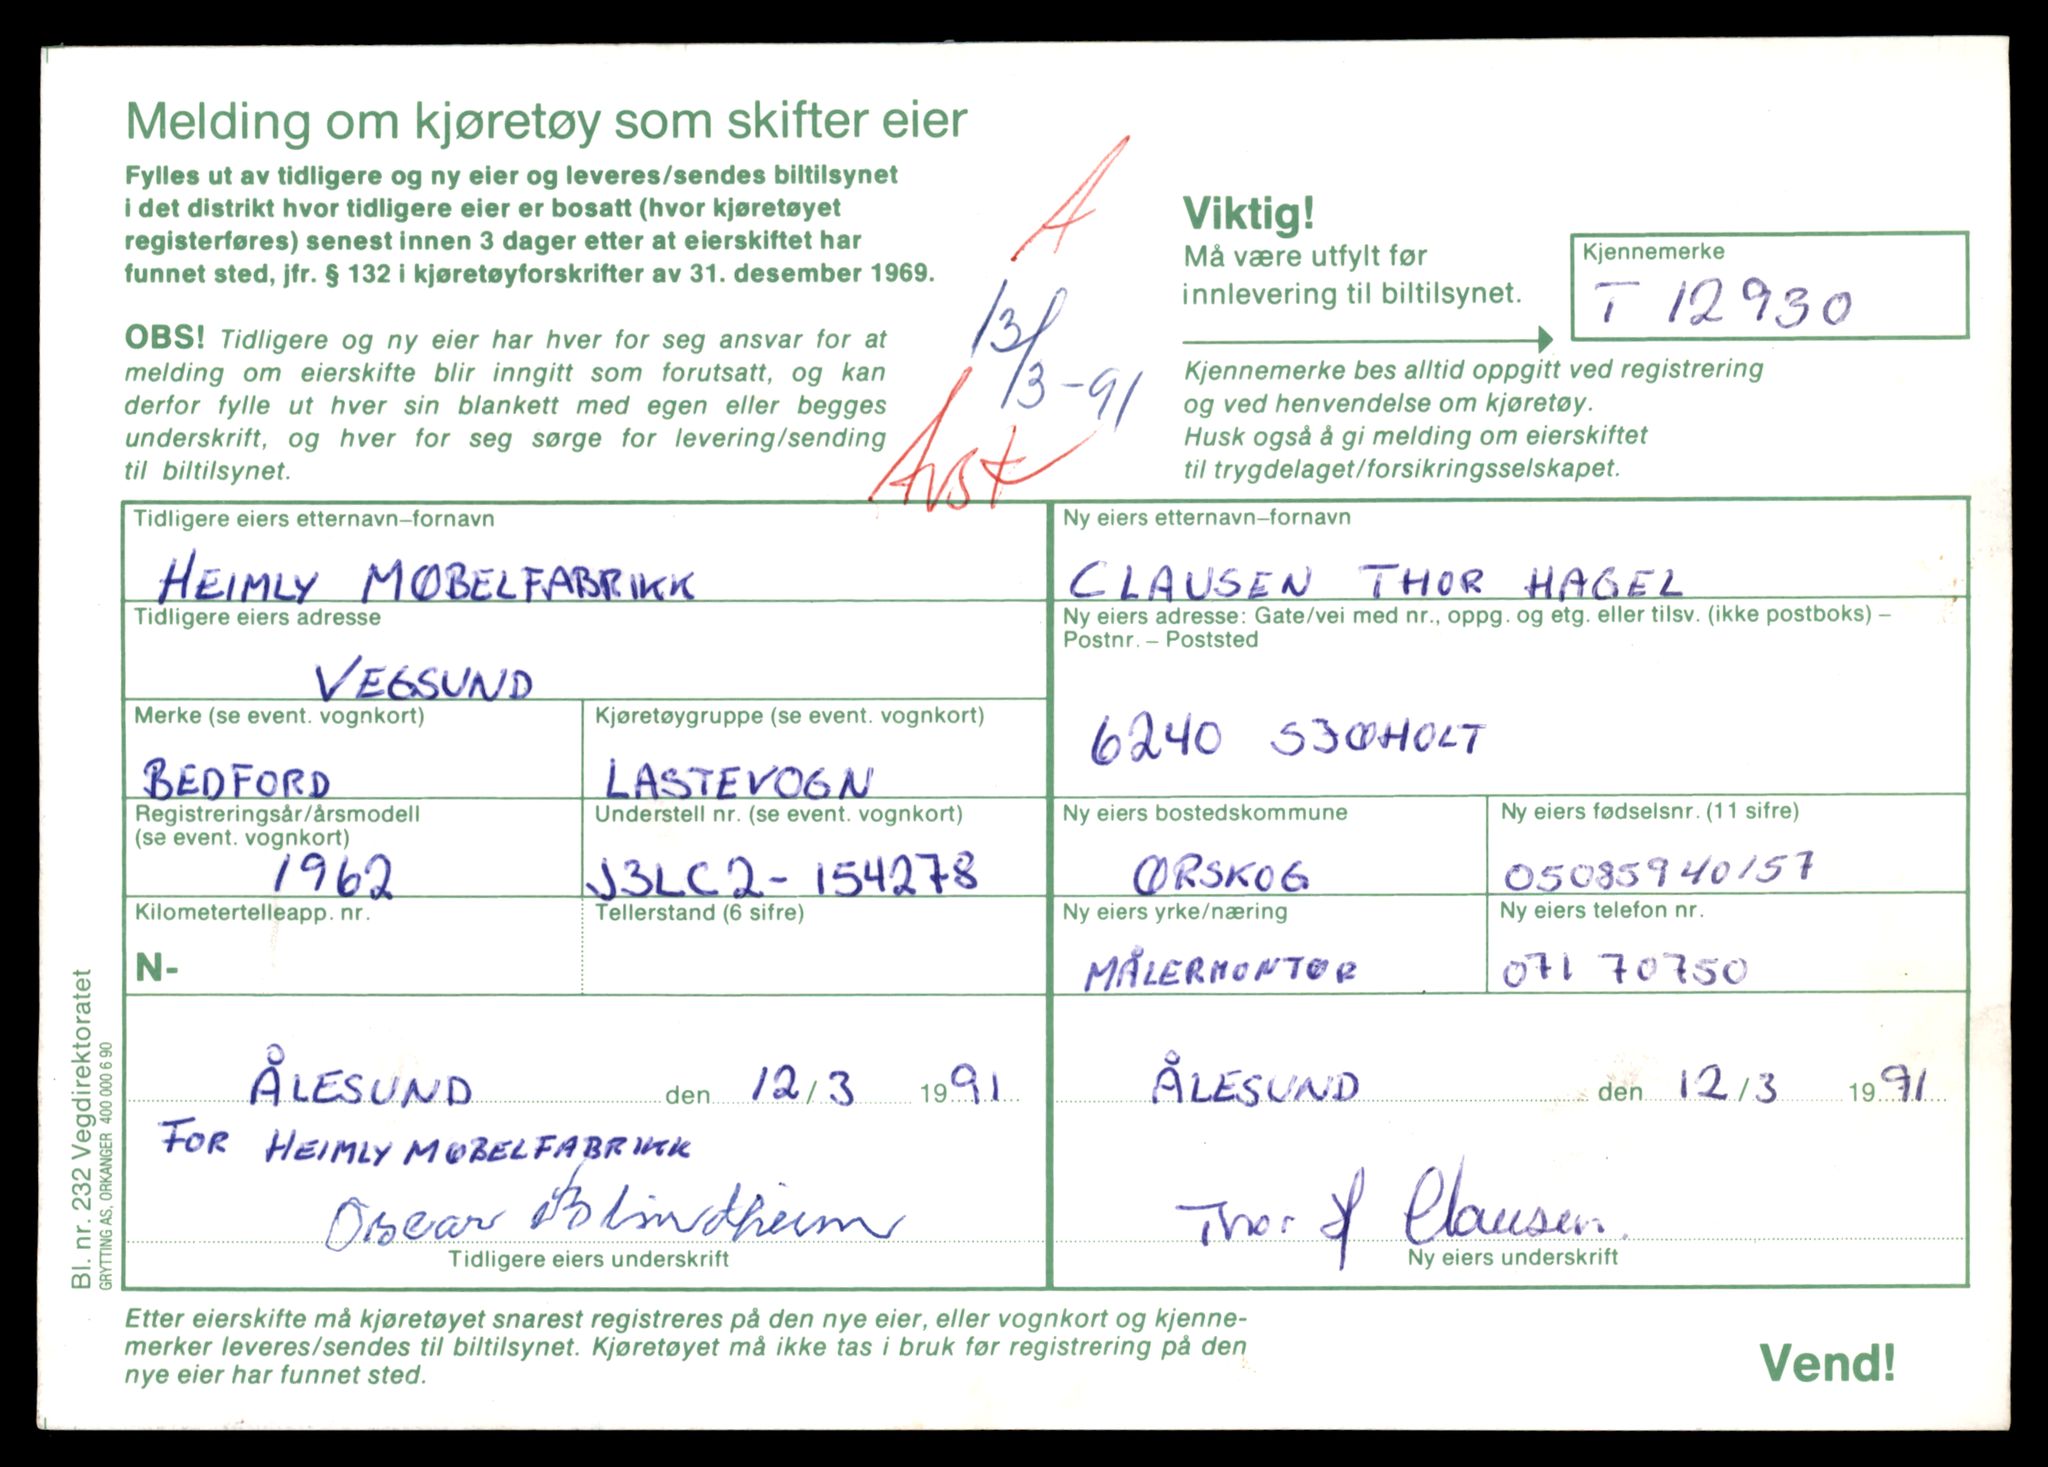 Melding om kjøretøy som skifter eier
Fylles ut av tidligere og ny eier og leveres/sendes biltilsynet
i det distrikt hvor tidligere eier er bosatt (hvor kjøretøyet
registerføres) senest innen 3 dager etter at eierskiftet har
funnet sted, jfr. § 132 i kjøretøyforskrifter av 31. desember 1969.
OBS! Tidligere og ny eier har hver for seg ansvar for at
melding om eierskifte blir inngitt som forutsatt, og kan
derfor fylle ut hver sin blankett med egen eller begges
underskrift, og hver for seg sørge for levering/sending
til biltilsynet.
A
13/
/3-91
Avst
Viktig!
Må være utfylt før
innlevering til biltilsynet.
Kjennemerke
T 12930
Kjennemerke bes alltid oppgitt ved registrering
og ved henvendelse om kjøretøy.
Husk også å gi melding om eierskiftet
til trygdelaget/forsikringsselskapet.
Tidligere eiers etternavn–fornavn
HEIMLY MØBELFABRIKK
Tidligere eiers adresse
VEGSUND
Merke (se event. vognkort)
BEDFORD
Kjøretøygruppe (se event. vognkort)
LASTEVOGN
Registreringsår/årsmodell
(se event. vognkort)
1962
Understell nr. (se event. vognkort)
J3LC2-154278
Kilometertelleapp. nr.
N-
Tellerstand (6 sifre)
Ny eiers etternavn–fornavn
CLAUSEN THOR HAGEL
Ny eiers adresse: Gate/vei med nr., oppg. og etg. eller tilsv. (ikke postboks) –
Postnr. – Poststed
6240 SJØHOLT
Ny eiers bostedskommune
ØRSKOG
Ny eiers fødselsnr. (11 sifre)
05085940157
Ny eiers yrke/næring
MÅLERMONTØR
Ny eiers telefon nr.
071 70750
ÅLESUND den 12/3 1991
FOR HEIMLY MØBELFABRIKK
Oscar Blindheim
Tidligere eiers underskrift
ÅLESUND den 12/3 1991
Thor H Clausen
Ny eiers underskrift
Bl. nr. 232 Vegdirektoratet
GRYTTING AS, ORKANGER 400 000 6 90
Etter eierskifte må kjøretøyet snarest registreres på den nye eier, eller vognkort og kjenne-
merker leveres/sendes til biltilsynet. Kjøretøyet må ikke tas i bruk før registrering på den
nye eier har funnet sted.
Vend!